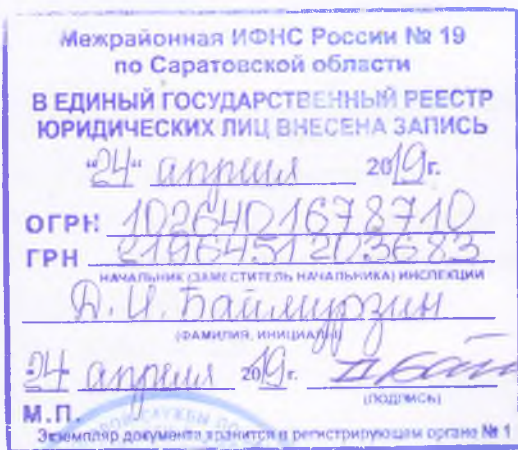 Межрайонная ИФНС России № 19
по Саратовской области
В ЕДИНЫЙ ГОСУДАРСТВЕННЫЙ РЕЕСТР
ЮРИДИЧЕСКИХ ЛИЦ ВНЕСЕНА ЗАПИСЬ
"24" апреля 2019г.
ОГРН 1026401678710
ГРН 2196451203683
НАЧАЛЬНИК (ЗАМЕСТИТЕЛЬ НАЧАЛЬНИКА) ИНСПЕКЦИИ
Д.И. Баймурзин
(ФАМИЛИЯ, ИНИЦИАЛЫ)
24 апреля 2019г.
(ПОДПИСЬ)
М.П.
Экземпляр документа хранится в регистрирующем органе № 1